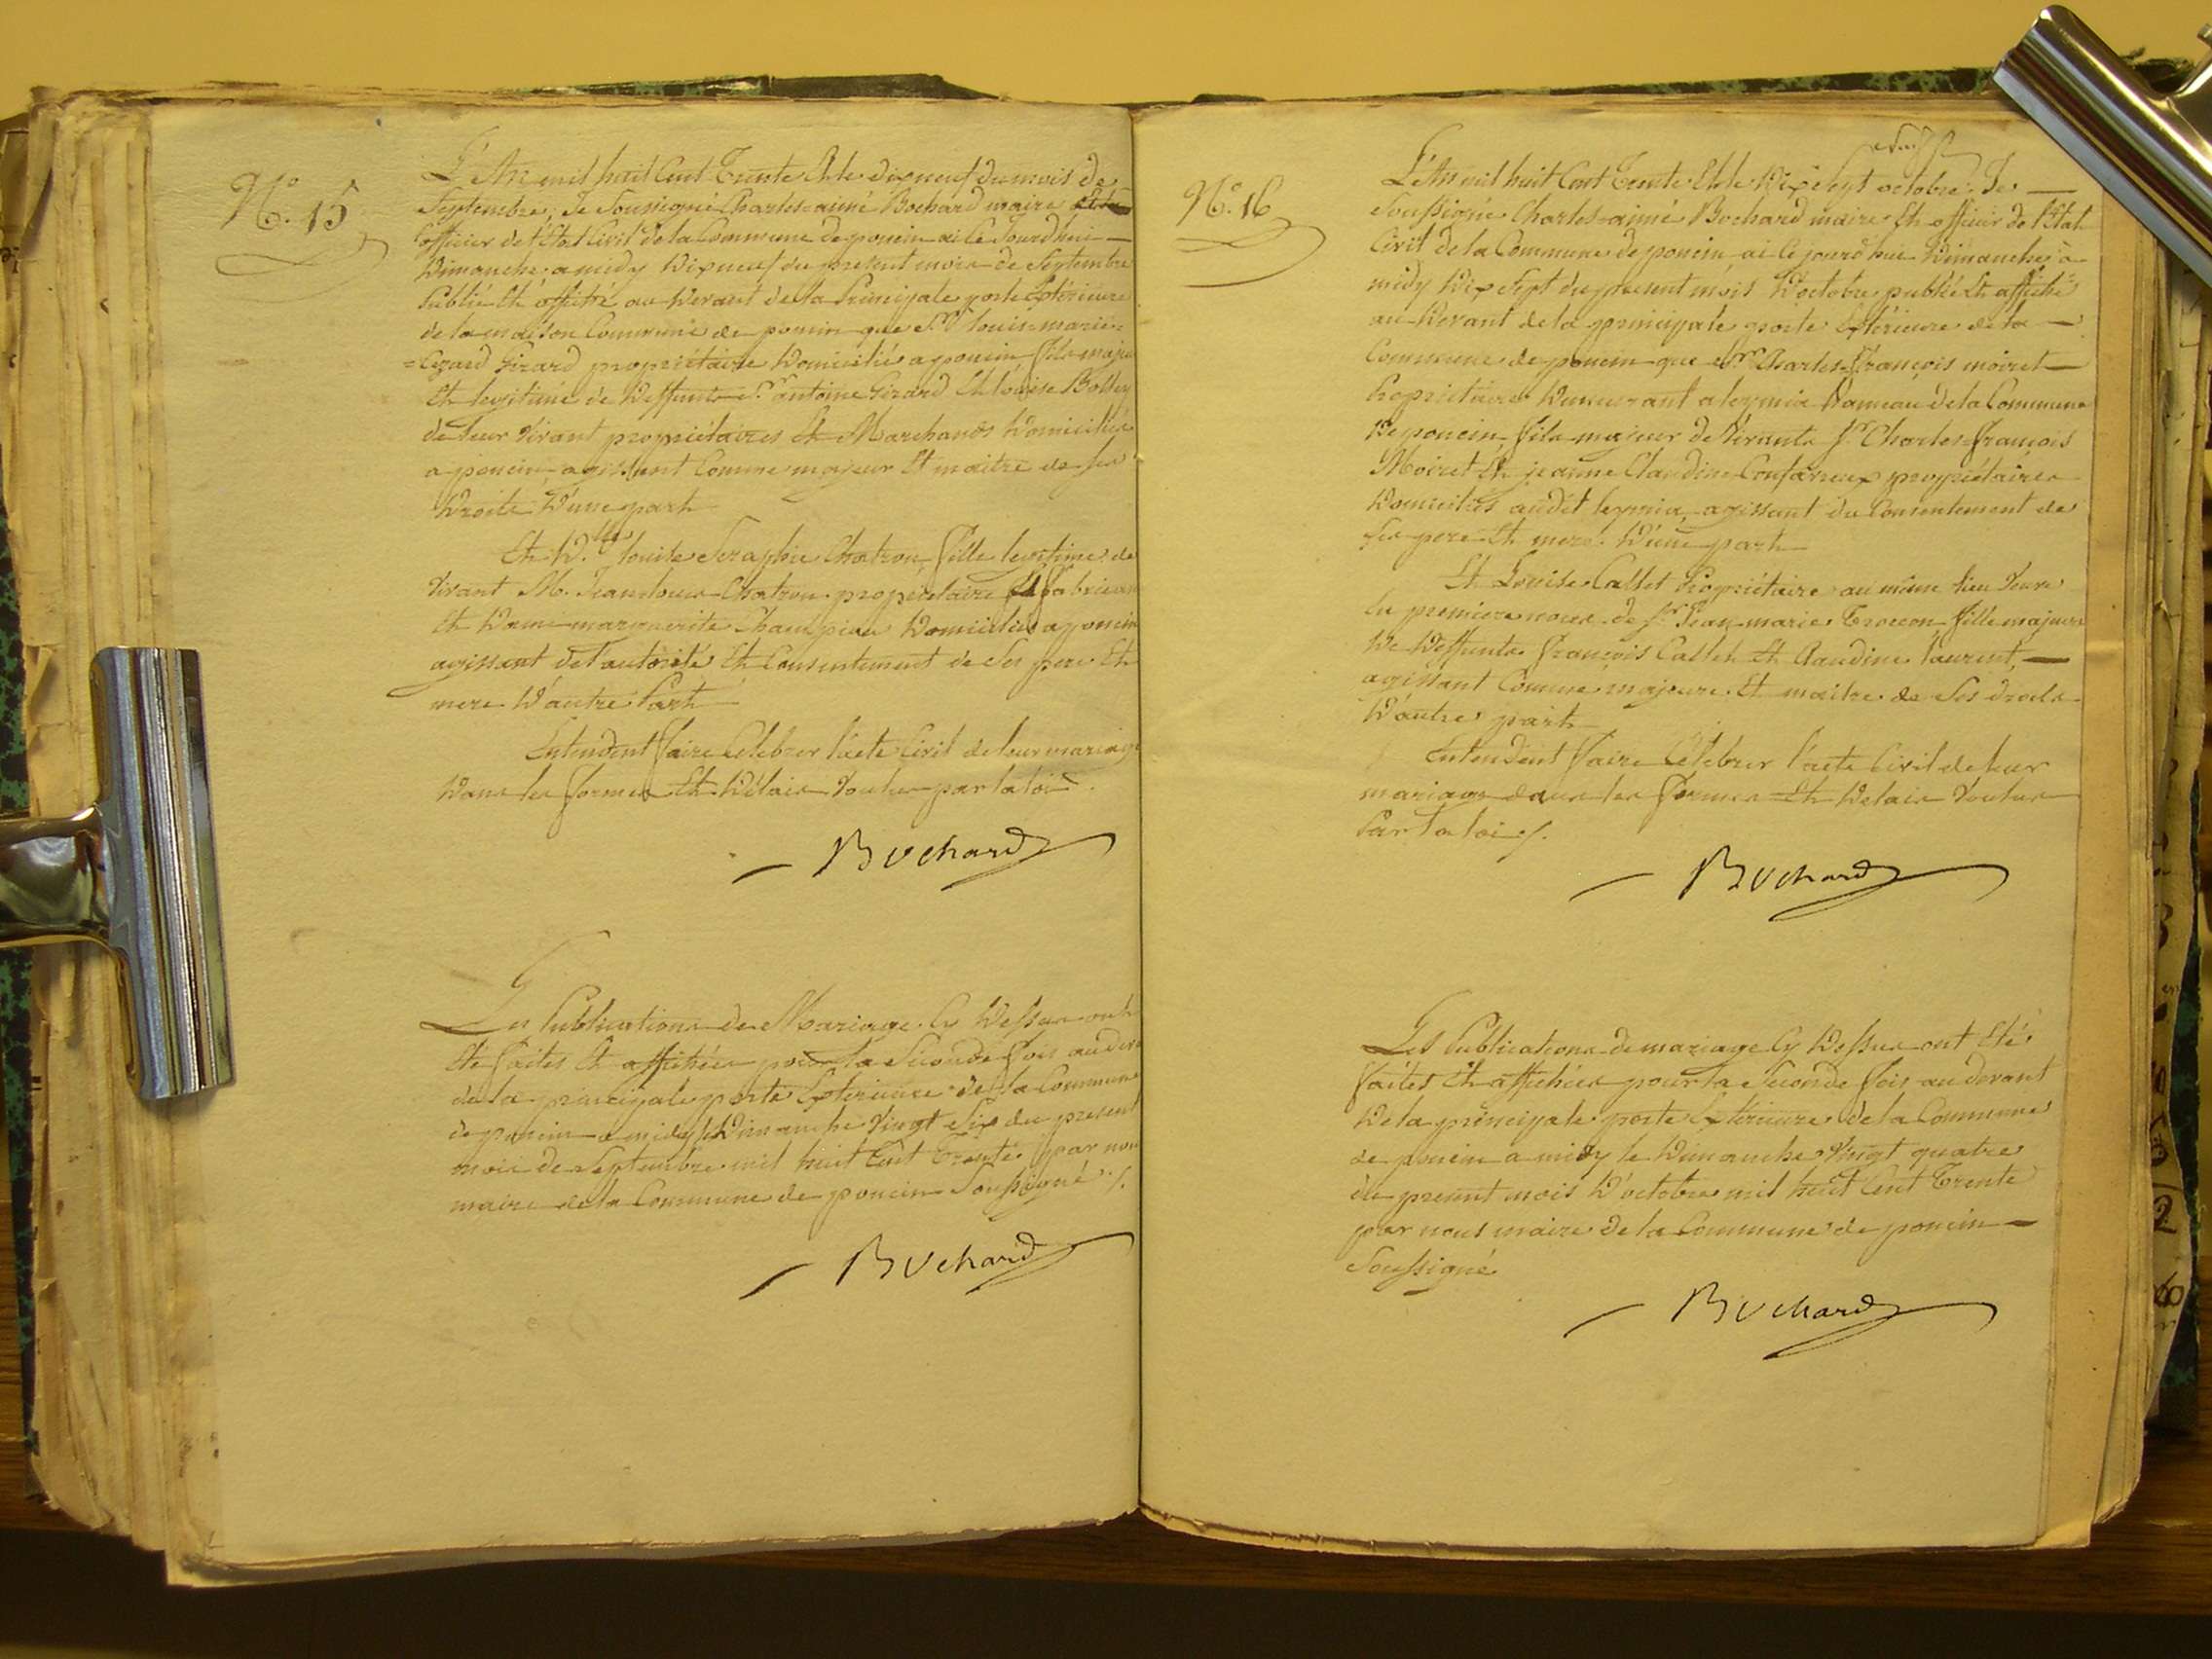 N.º 15
L'An mil huit Cent Trente Et le dix neuf du mois de
Septembre, Je Soussigné Charles=aimé Bochard maire
officier de l'Etat Civil de la Commune de poncin ai Ce Jourd'hui —
Dimanche a midy Dix neuf du present mois de Septembre
Publié Et affiché au devant de la Principale porte Extérieure
de la maison Commune de poncin que S.r louis=marie=
=Cezard Girard propriétaire Domicilié a poncin fils majeur
Et legitime de Deffunts S.r antoine Girard Et louise
de leur vivant propriétaires Et Marchands Domiciliés
a poncin, agissant Comme majeur Et maitre de ses
Droits D'une part
Et D.lle louise Seraphie Chatron fille legitime de
vivant M. Jean louis Chatron propriétaire Et fabricant
Et Dame marguerite Domiciliés a poncin
agissant de l'autorité Et Consentement de Ses pere Et
mere D'autre Part
Entendent faire Célébrer l'acte Civil de leur mariage
Dans les formes Et Délais Voulus par la loi.
Bochard
Les Publications de Mariage Cy Dessus ont
Eté faites Et affichées pour la Seconde fois au devant
de la principale porte Extérieure de la Commune
de poncin a midy le Dimanche Vingt Six du present
mois de Septembre mil huit Cent Trente par nous
maire de la Commune de poncin Soussigné /.
Bochard
N.º 16
L'An mil huit Cent Trente Et le Dix Sept octobre Je —
Soussigné Charles=aimé Bochard maire Et officier de l'Etat
Civil de la Commune de poncin ai Ce jourd'hui Dimanche à
midy Dix Sept du present mois D'octobre publié Et affiché
au Devant de la principale porte Extérieure de la —
Commune de poncin que S.r Charles=François moiret —
Propriétaire Demeurant a leymia hameau de la Commune
De poncin fils majeur de Vivants S.r Charles=françois
Moiret Et jeanne Claudine propriétaires
Domiciliés audit leymia, agissant du Consentement de
Ses pere Et mere D'une part
Et Louise Callet Propriétaire au même lieu Veuve
En premiere noces de S.r Jean marie Trocon fille majeure
De Deffunts françois Callet Et Claudine laurent, —
agissant Comme majeure Et maitre de Ses droits
D'autre part
Entendent faire Célébrer l'acte Civil de leur
mariage dans les formes Et Délais Voulus
Par la loi /.
Bochard
Les Publications de mariage Cy Dessus ont Eté
faites Et affichées pour la Seconde fois au devant
De la principale porte Extérieure de la Commune
de poncin a midy le Dimanche Vingt quatre
du present mois D'octobre mil huit Cent Trente
par nous maire de la Commune de poncin —
Soussigné
Bochard